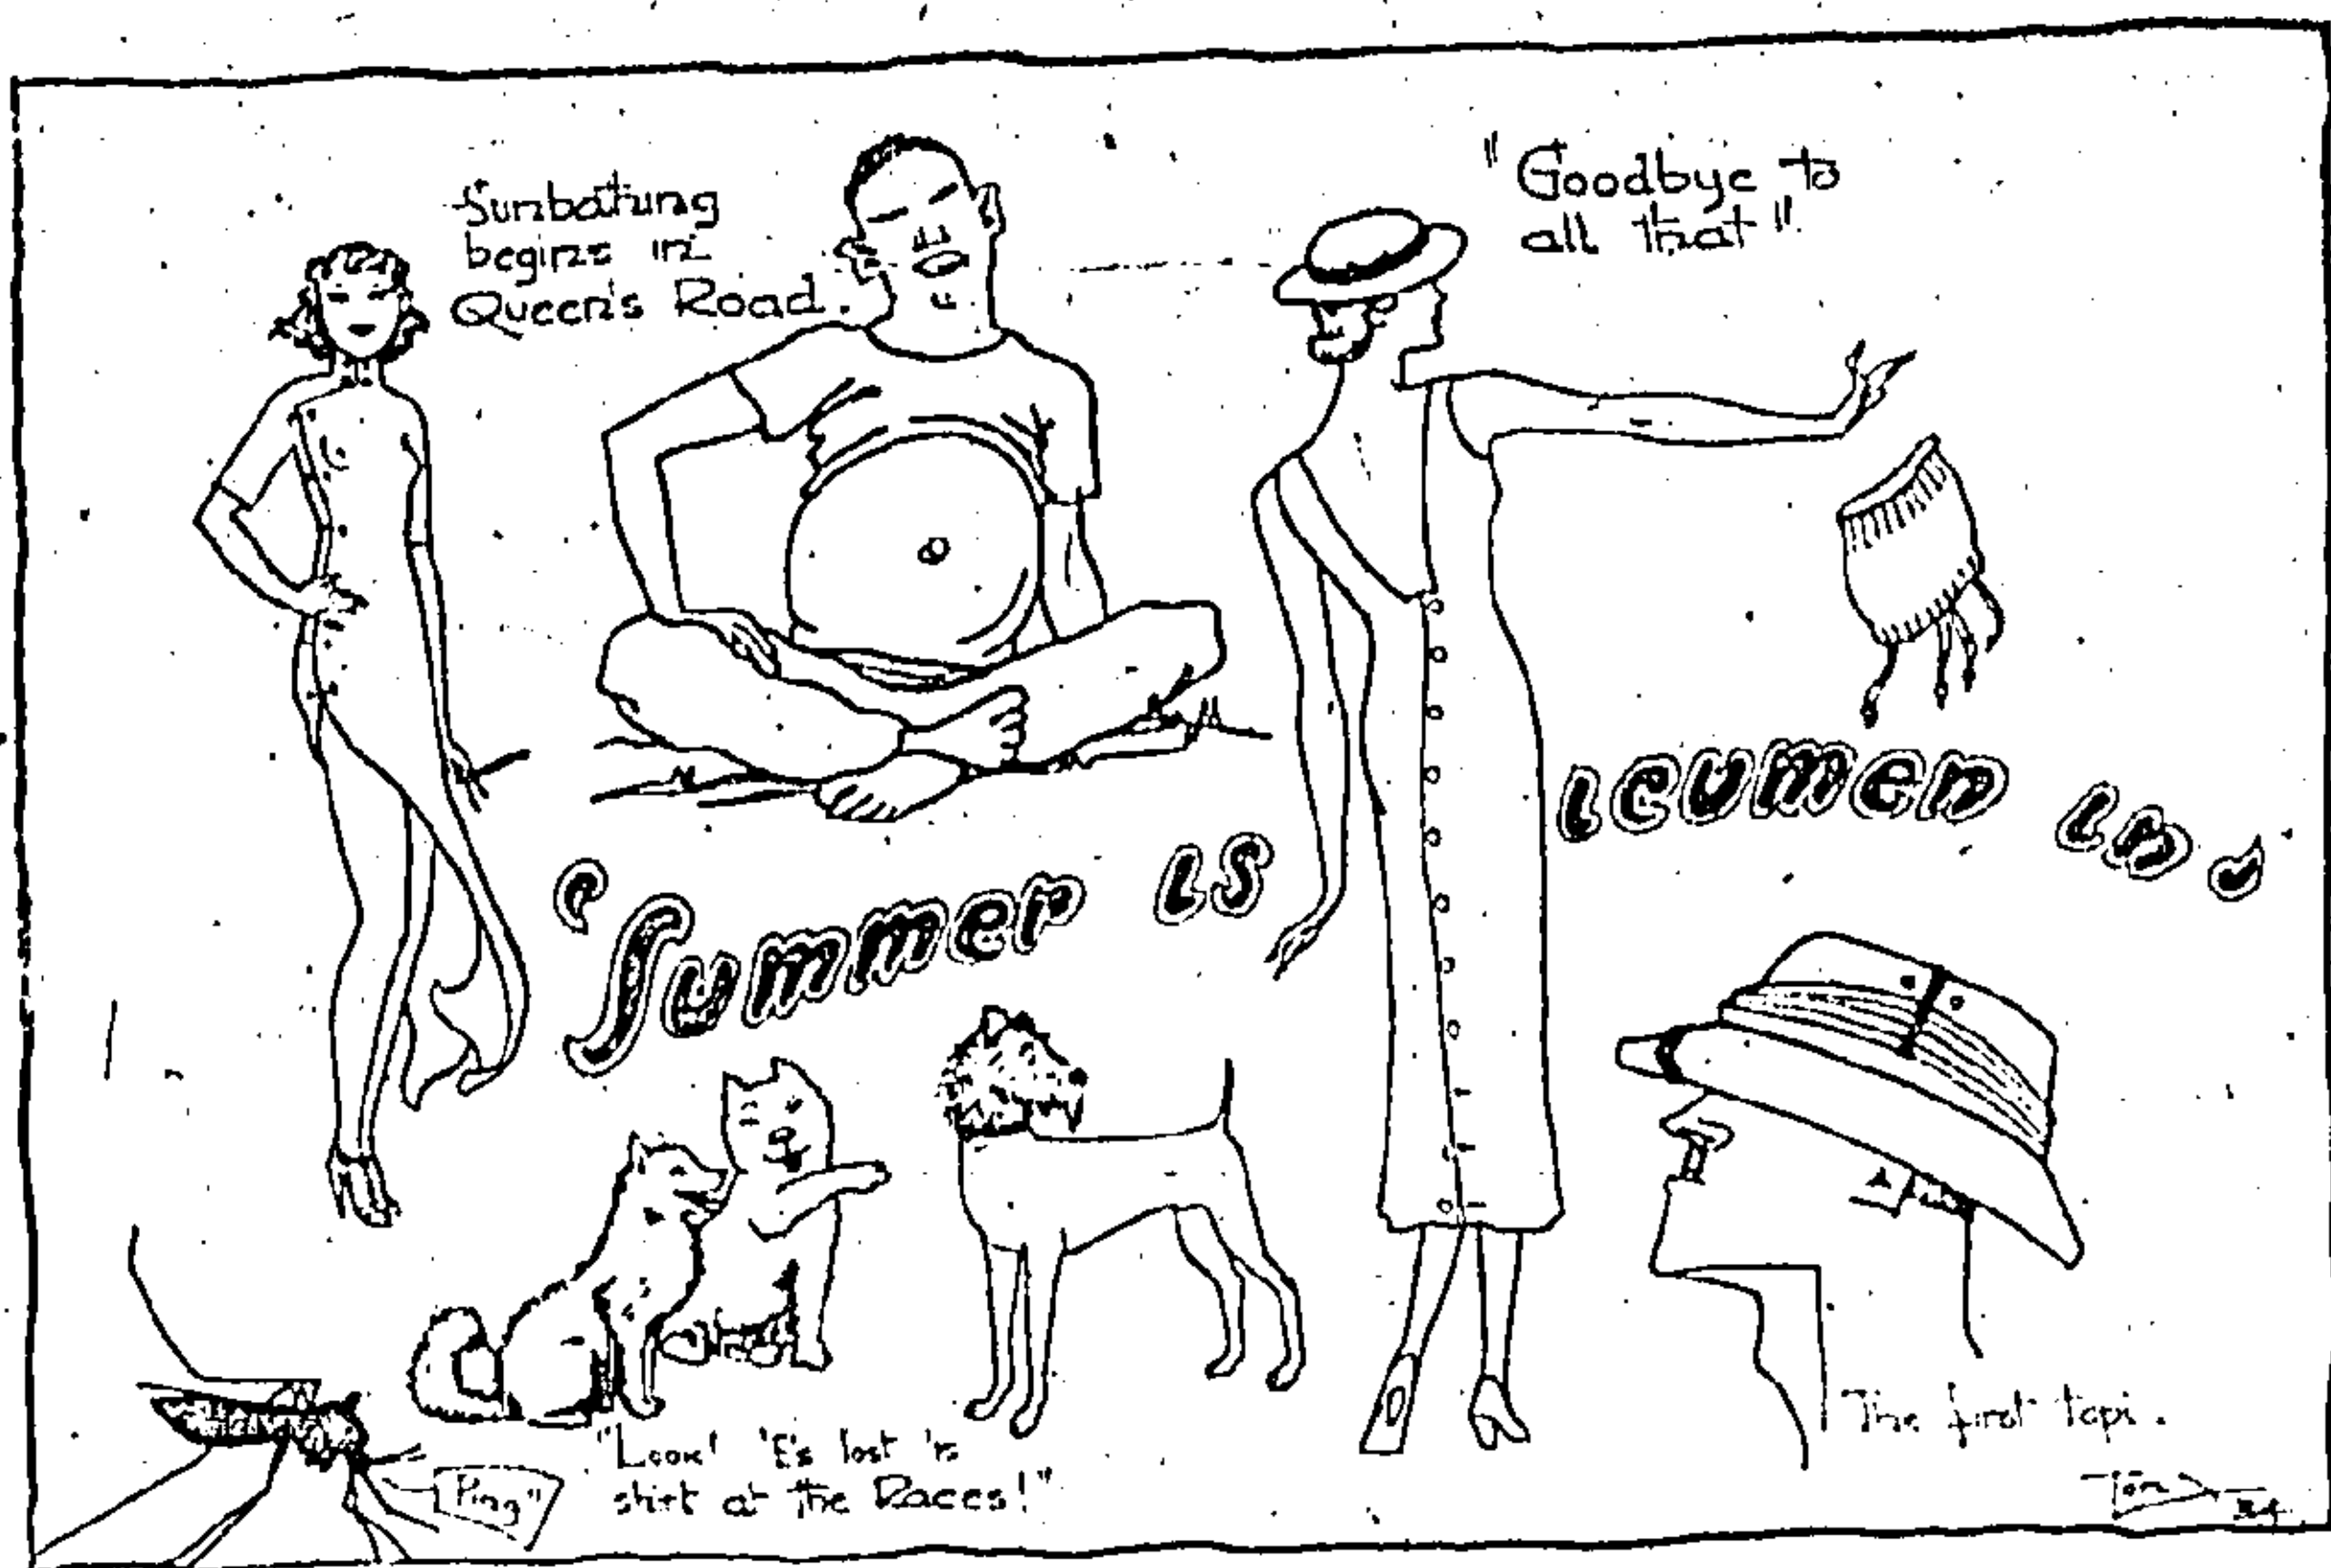 Sunbathing
begins in
Queen's Road.
"Goodbye to
all that".
'Summer is icumen in,
"Look! 'E's lost 'is
shirt at the Races!"
"Ping"
The first topi.